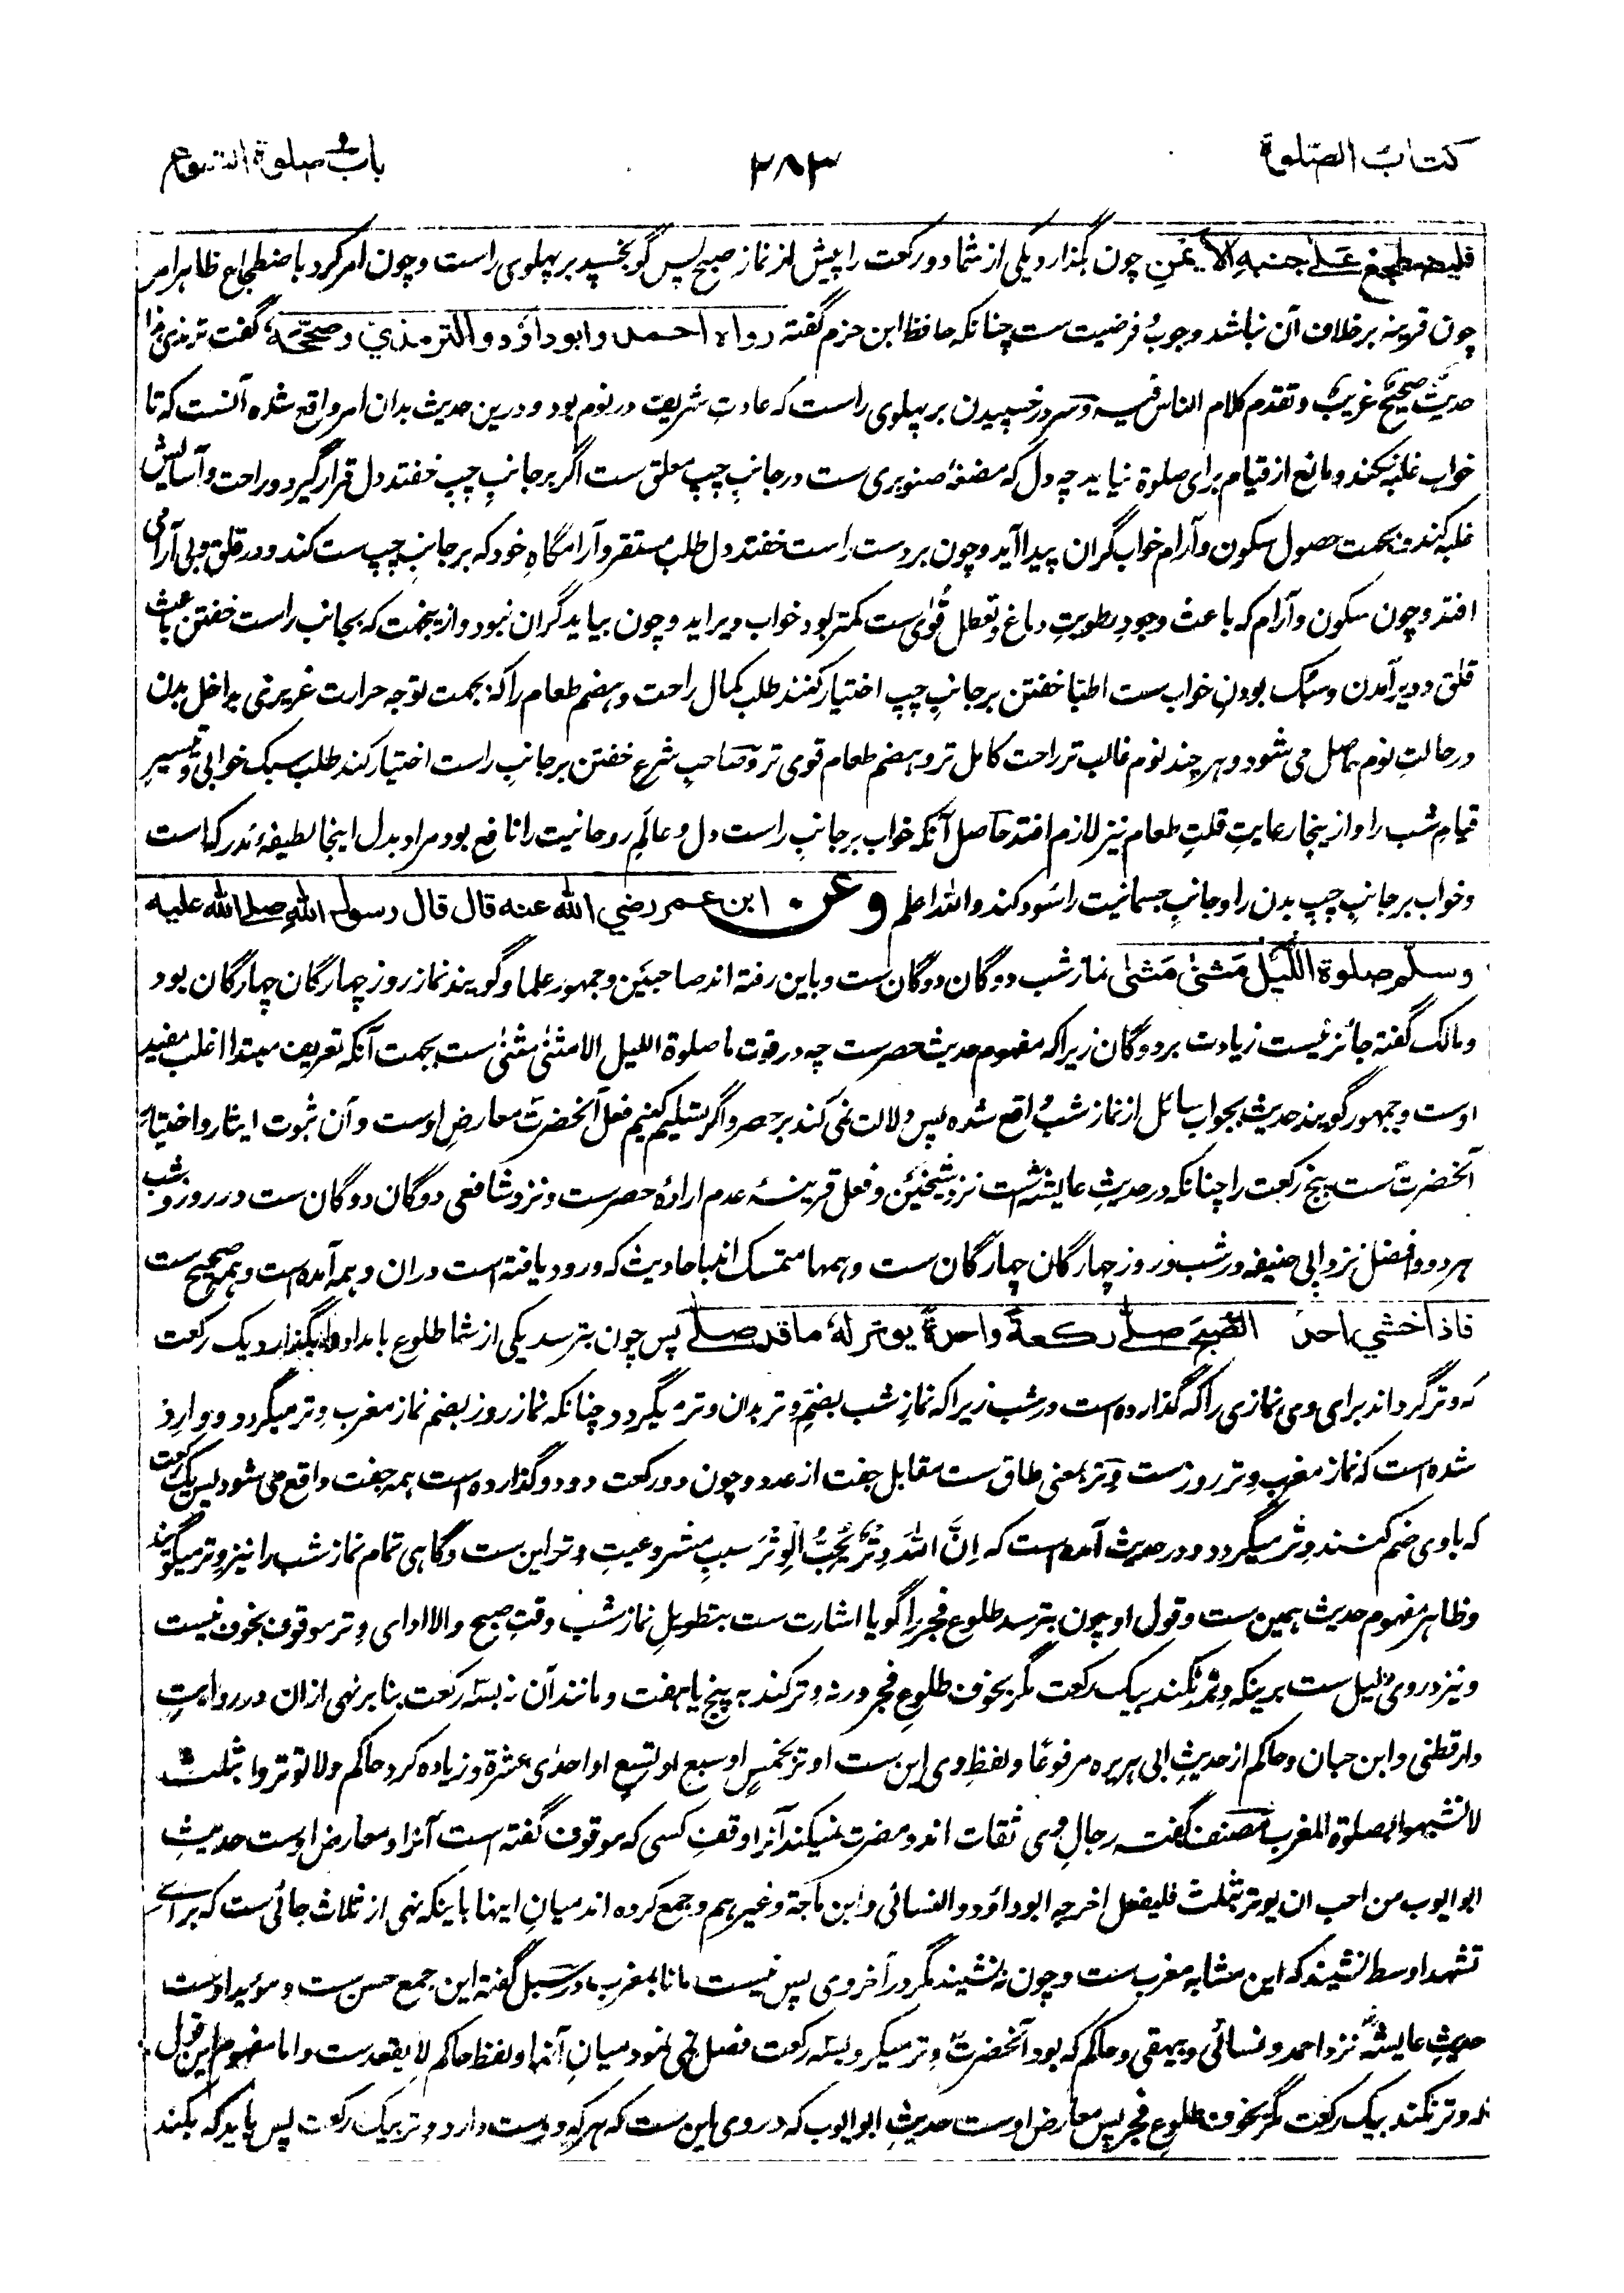 كتاب الصلوة
۲۸۳
باب صلوة التطوع
فليضطجع على جنبه الايمن چون بگذارد یکی از شما دو رکعت را پیش از نماز صبح پس گو بخسپد بر پہلوی راست و چون امر کرد باضطجاع ظاہر امر
چون قرینہ بر خلاف آن نباشد وجوب فرضیت ست چنانکہ حافظ ابن حزم گفتہ رواه احمد وابوداؤد والترمذي وصححه گفت ترمذی ہذا
حدیث صحیح غریب و تقدم کلام الناس فیہ و سر در خسپیدن بر پہلوی راست کہ عادت شریف در نوم بود و درین حدیث بدان امر واقع شدہ آنست کہ تا
خواب غلبہ نکند و مانع از قیام برای صلوة نیاید چہ دل کہ مضغہ صنوبری ست در جانبِ چپ معلق ست اگر بر جانبِ چپ خفتد دل قرار گیرد و راحت و آسایش
غلبہ کند و بجہت حصول سکون و آرام خواب گران پیدا آید و چون بر دست راست خفتد دل طلب مستقر و آرامگاہِ خود کہ بر جانبِ چپ ست کند و در قلق و بی آرامی
افتد و چون سکون و آرام کہ باعث وجودِ رطوبتِ دماغ و تعطل قُوٰی ست کمتر بود خواب دیر اید و چون بیاید گران نبود و ازینجہت کہ بجانب راست خفتن باعث
قلق و دیر آمدن و سبک بودنِ خواب ست اطبا خفتن بر جانبِ چپ اختیار کنند طلب کمال راحت و ہضم طعام را کہ بجہت توجہ حرارت غریزی بداخل بدن
در حالتِ نوم حاصل می شود و ہر چند نوم غالب تر راحت کامل تر و ہضم طعام قوی تر و صاحبِ شرع خفتن بر جانبِ راست اختیار کند طلب سبک خوابی و تیسیرِ
قیامِ شب را و از ینجا رعایتِ قلتِ طعام نیز لازم افتد حاصل آنکہ خواب بر جانبِ راست دل و عالَمِ روحانیت را نافع بود مراد بدل اینجا لطیفۂ مدرکہ است
و خواب بر جانبِ چپ بدن را و جانبِ جسمانیت را سُود کند واللہ اعلم وعن ابن عمر رضي الله عنه قال قال رسول الله صلى الله عليه
وسلم صلوة الليل مَثنىٰ مَثنىٰ نماز شب دوگان دوگان ست و باین رفتہ اند صاحبین و جمہور علما و گویند نماز روز چہارگان چہارگان بود
و مالک گفتہ جائز نیست زیادت بر دوگان زیراکہ مفہومِ حدیث حصرست چہ در قوت ما صلوة اللیل الا مثنیٰ مثنیٰ ست بجہت آنکہ تعریف مبتدا اغلب مفید
اوست و جمہور گویند حدیث بجواب سائل از نماز شب واقع شدہ پس دلالت نمی کند بر حصر و اگر تسلیم کنیم فعل آنحضرت معارضِ اوست و آن ثبوت ایثار و اختیارِ
آنحضرت ست پنج رکعت را چنانکہ در حدیث عایشہ است نزد شیخین و فعل قرینۂ عدم ارادۂ حصرست و نزد شافعی دوگان دوگان ست در روز و شب
ہر دو و افضل نزد ابی حنیفہ در شب و روز چہارگان چہارگان ست و ہمہا متمسک اند باحادیث کہ ورود یافتہ است دران و ہمہ آمدہ است و ہمہ صحیح ست
فاذا خشي احد الصُّبحَ صلّى ركعةً واحدةً يوتر لهٗ ما قد صلّى پس چون بترسد یکی از شما طلوع بامداد را بگذارد یک رکعت
کہ وتر گرداند برای وی نمازی را کہ گذاردہ است در شب زیراکہ نمازِ شب بضمِّ وتر بدان وتر میگردد چنانکہ نماز روز بضم نماز مغرب وتر میگردد و واردِ
شدہ است کہ نماز مغرب وترِ روزست و وتر بمعنی طاق ست مقابل جفت از عدد و چون دو رکعت دو دو گذاردہ است ہمہ جفت واقع می شود پس یک رکعت
کہ باوی ضم کنند وتر میگردد و در حدیث آمدہ است کہ اِنَّ اللهَ وِتْرٌ يُحِبُّ الْوِتْرَ سببِ مشروعیتِ وتر این ست و گاہی تمام نماز شب را نیز وتر میگویند
و ظاہر مفہوم حدیث ہمین ست و قول او چون بترسد طلوع فجر را گویا اشارت ست بتطویلِ نماز شب وقتِ صبح والا ادای وتر موقوف بخوف نیست
و نیز در وی دلیل ست برینکہ وتر نکند بیک رکعت مگر بخوف طلوعِ فجر ورنہ وتر کند بہ پنج یا ہفت و مانند آن نہ بسہ رکعت بنا بر نہی ازان در روایتِ
دارقطنی و ابن حبان و حاکم از حدیثِ ابی ہریرہ مرفوعًا و لفظِ وی این ست اوتر بخمسٍ او سبع او تسعٍ او احدٰی عشرة و زیادہ کرد حاکم ولا توتروا بثلث
لا تشبہوا بصلوة المغرب مصنف گفتہ رجالِ وی ثقات اند و مضرت نمیکند آنرا وقفِ کسی کہ موقوف گفتہ است آنرا و معارض اوست حدیثِ
ابو ایوب من احب ان یوتر بثلث فلیفعل اخرجہ ابوداؤد و النسائی و ابن ماجة و غیرہم و جمع کردہ اند میانِ اینہا باینکہ نہی از ثلاث جائی ست کہ براے
تشہد اوسط نشیند کہ این مشابہ مغرب ست و چون نہ نشیند مگر در آخر وی پس نیست مانا بمغرب و در سبل گفتہ این جمع حسن ست و مؤید اوست
حدیثِ عایشہ نزد احمد و نسائی و بیہقی و حاکم کہ بود آنحضرت وتر میکرد بسہ رکعت فصل نمی نمود میانِ آنہا و لفظ حاکم لا یقعدست و اما مفہوم این قول
کہ وتر نکند بیک رکعت مگر بخوف طلوعِ فجر پس معارض اوست حدیثِ ابو ایوب کہ در وی این ست کہ ہر کہ دوست دارد وتر بیک رکعت پس باید کہ بکند